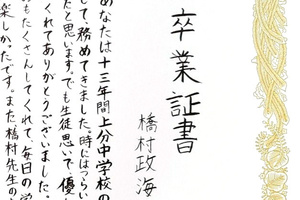 卒業証書
橋村政海
あなたは十三年間上分中学校の
して、務めてきました。時にはつらい
だと思います。でも生徒思いで、優し
くれてありがとうございました。
おもたくさんしてくれて、毎日の学
楽しかったです。また橋村先生の